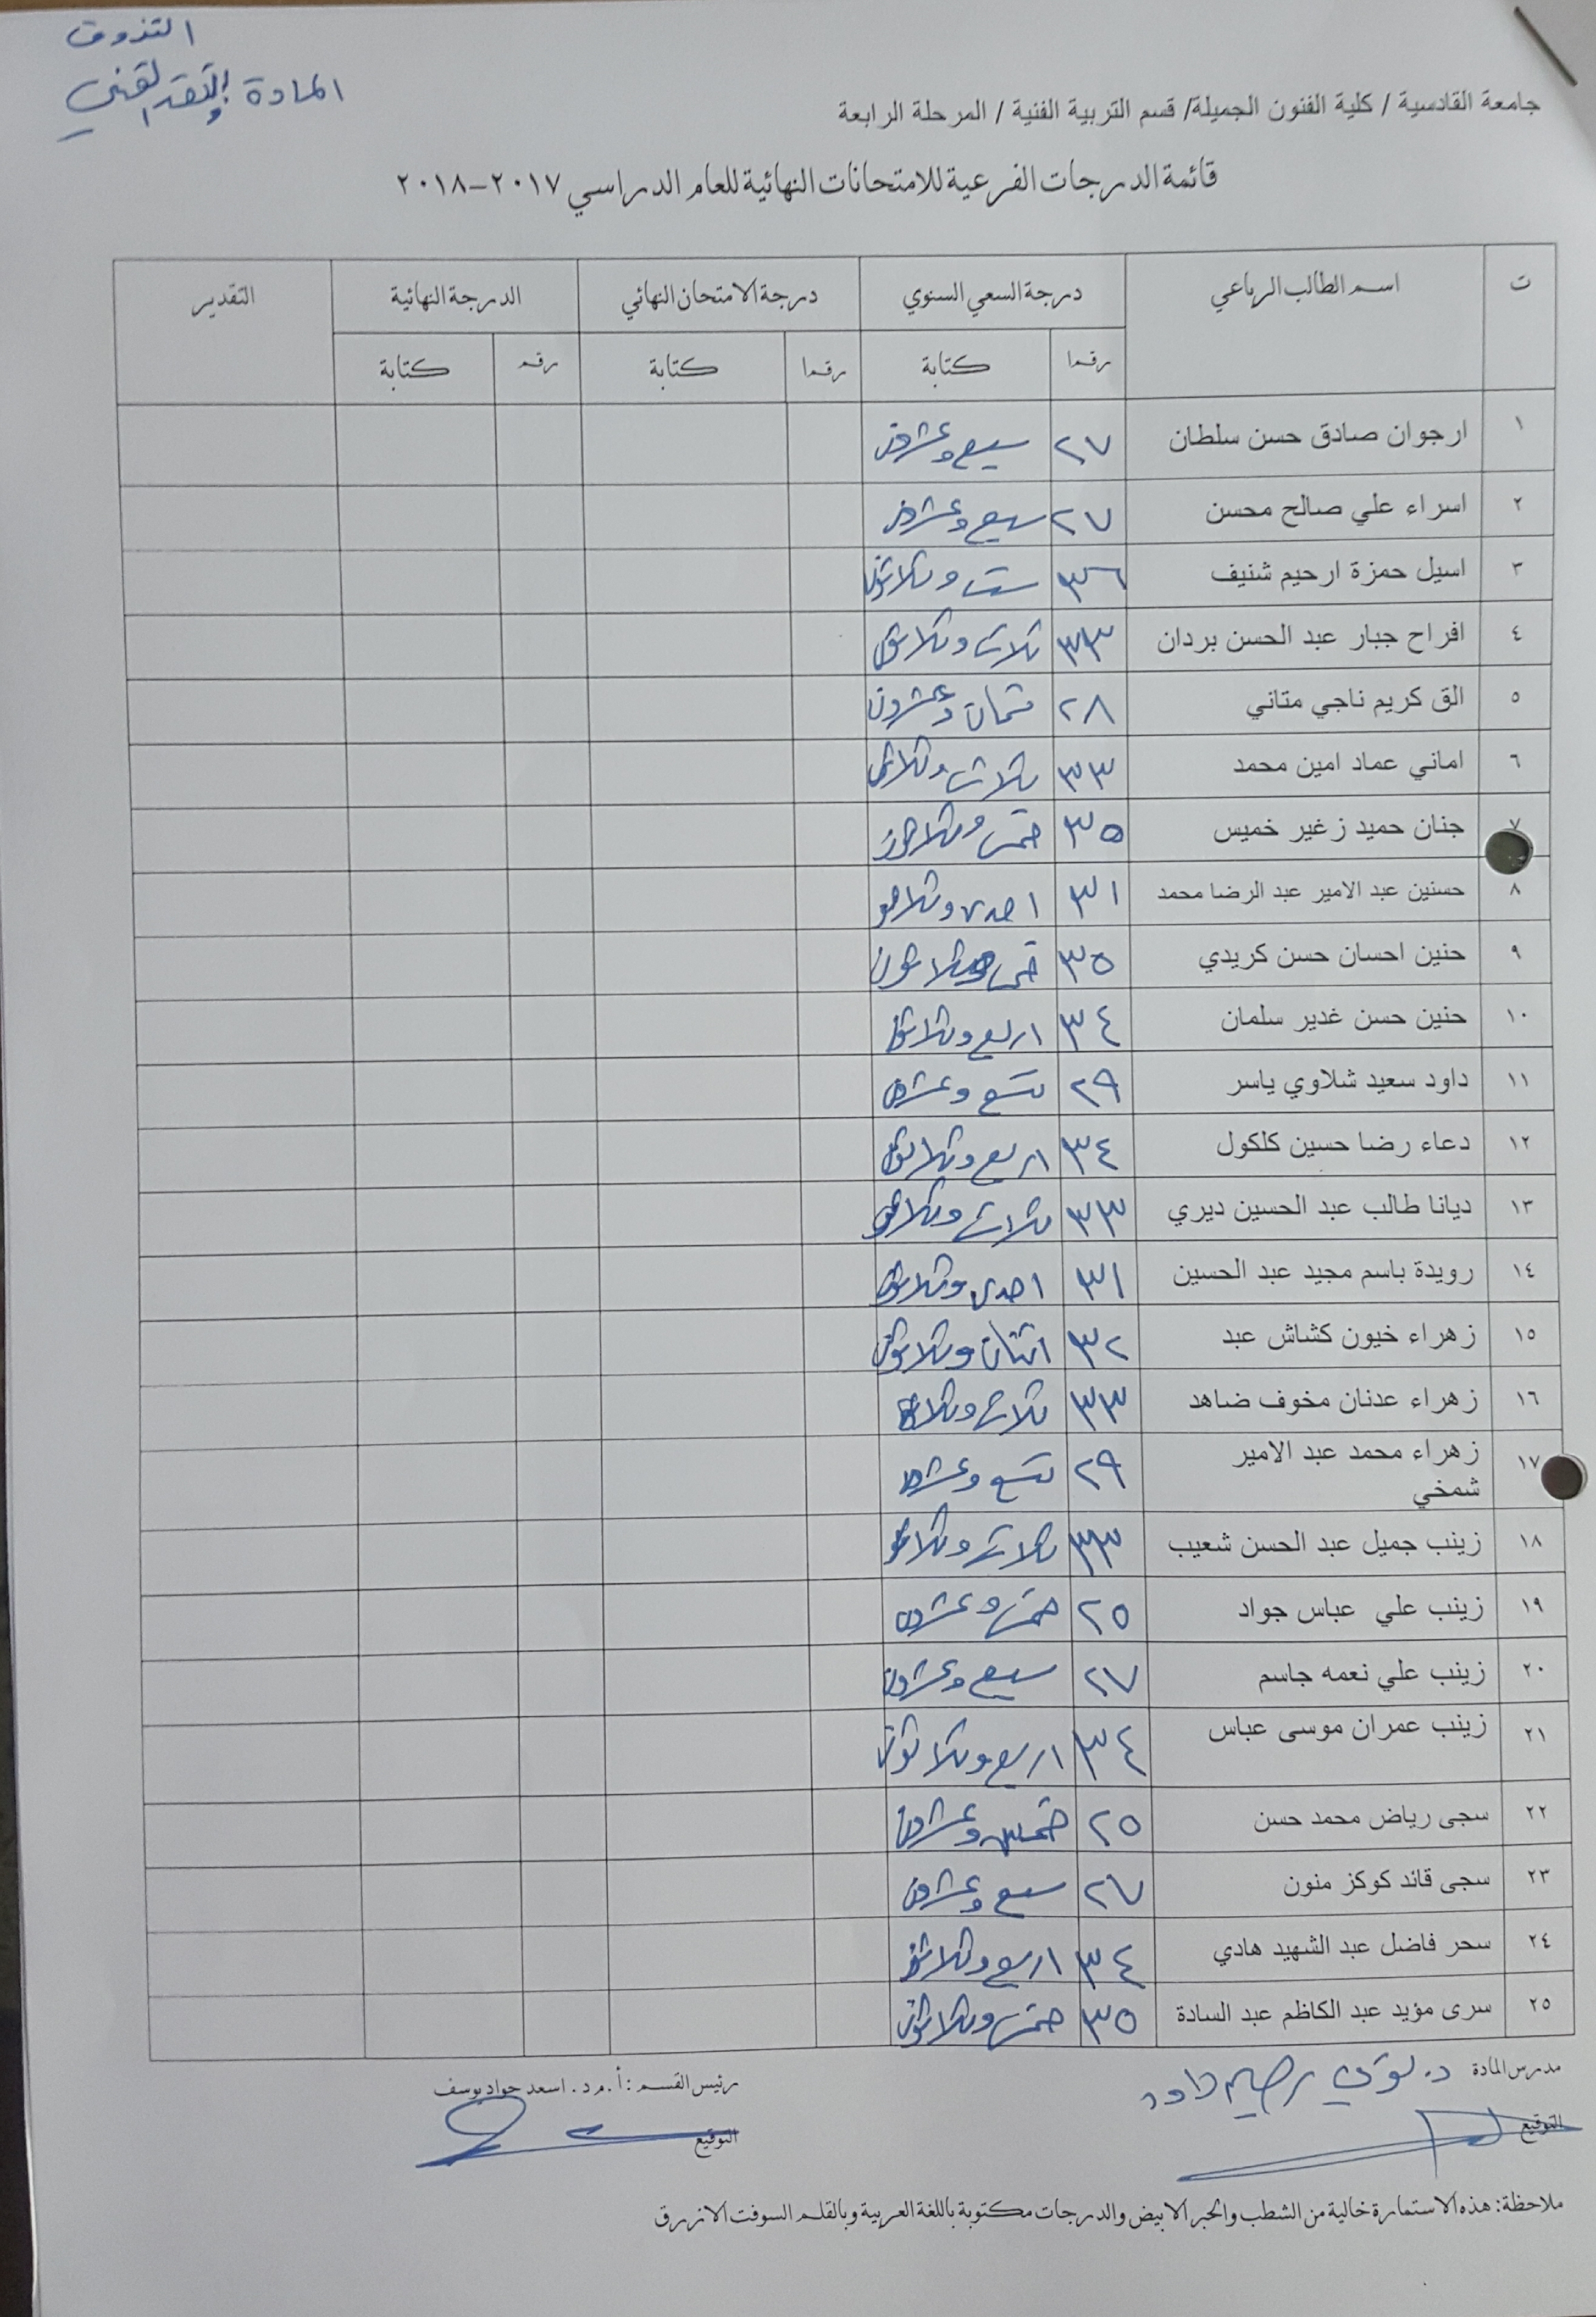 التذوق
المادة والنقد الفني
جامعة القادسية / كلية الفنون الجميلة/ قسم التربية الفنية / المرحلة الرابعة
قائمة الدرجات الفرعية للامتحانات النهائية للعام الدراسي ٢٠١٧-٢٠١٨
ت اسم الطالب الرباعي درجة السعي السنوي درجة الامتحان النهائي الدرجة النهائية التقدير
رقما كتابة رقما كتابة رقم كتابة
١ ارجوان صادق حسن سلطان ٢٧ سبع وعشرون
٢ اسراء علي صالح محسن ٢٧ سبع وعشرون
٣ اسيل حمزة ارحيم شنيف ٣٦ ست وثلاثون
٤ افراح جبار عبد الحسن بردان ٣٣ ثلاث وثلاثون
٥ الق كريم ناجي متاني ٢٨ ثمان وعشرون
٦ اماني عماد امين محمد ٣٣ ثلاث وثلاثون
٧ جنان حميد زغير خميس ٣٥ خمس وثلاثون
٨ حسنين عبد الامير عبد الرضا محمد ٣١ احدى وثلاثون
٩ حنين احسان حسن كريدي ٣٥ خمس وثلاثون
١٠ حنين حسن غدير سلمان ٣٤ اربع وثلاثون
١١ داود سعيد شلاوي ياسر ٢٩ تسع وعشرون
١٢ دعاء رضا حسين كلكول ٣٤ اربع وثلاثون
١٣ ديانا طالب عبد الحسين ديري ٣٣ ثلاث وثلاثون
١٤ رويدة باسم مجيد عبد الحسين ٣١ احدى وثلاثون
١٥ زهراء خيون كشاش عبد ٣٢ اثنان وثلاثون
١٦ زهراء عدنان مخوف ضاهد ٣٣ ثلاث وثلاثون
١٧ زهراء محمد عبد الامير ٢٩ تسع وعشرون
شمخي
١٨ زينب جميل عبد الحسن شعيب ٣٣ ثلاث وثلاثون
١٩ زينب علي عباس جواد ٢٥ خمس وعشرون
٢٠ زينب علي نعمه جاسم ٢٧ سبع وعشرون
٢١ زينب عمران موسى عباس ٣٤ اربع وثلاثون
٢٢ سجى رياض محمد حسن ٢٥ خمس وعشرون
٢٣ سجى قائد كوكز منون ٢٧ سبع وعشرون
٢٤ سحر فاضل عبد الشهيد هادي ٣٤ اربع وثلاثون
٢٥ سرى مؤيد عبد الكاظم عبد السادة ٣٥ خمس وثلاثون
مدرس المادة د. لؤي رحيم داود رئيس القسم : أ.م.د. اسعد جواد يوسف
التوقيع التوقيع
ملاحظة: هذه الاستمارة خالية من الشطب والحبر الابيض والدرجات مكتوبة باللغة العربية وبالقلم السوفت الازرق